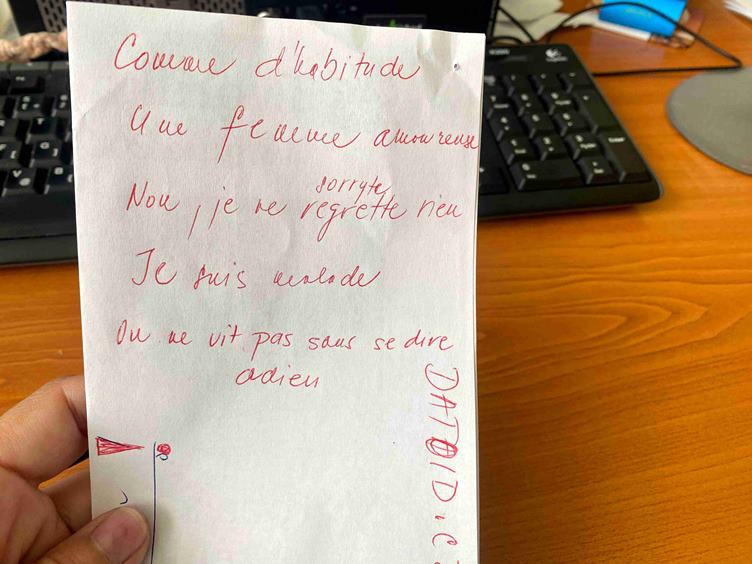 Comme d'habitude
Une femme amoureuse
sorryte
Non, je ne regrette rien
Je suis malade
On ne vit pas sans se dire
adieu